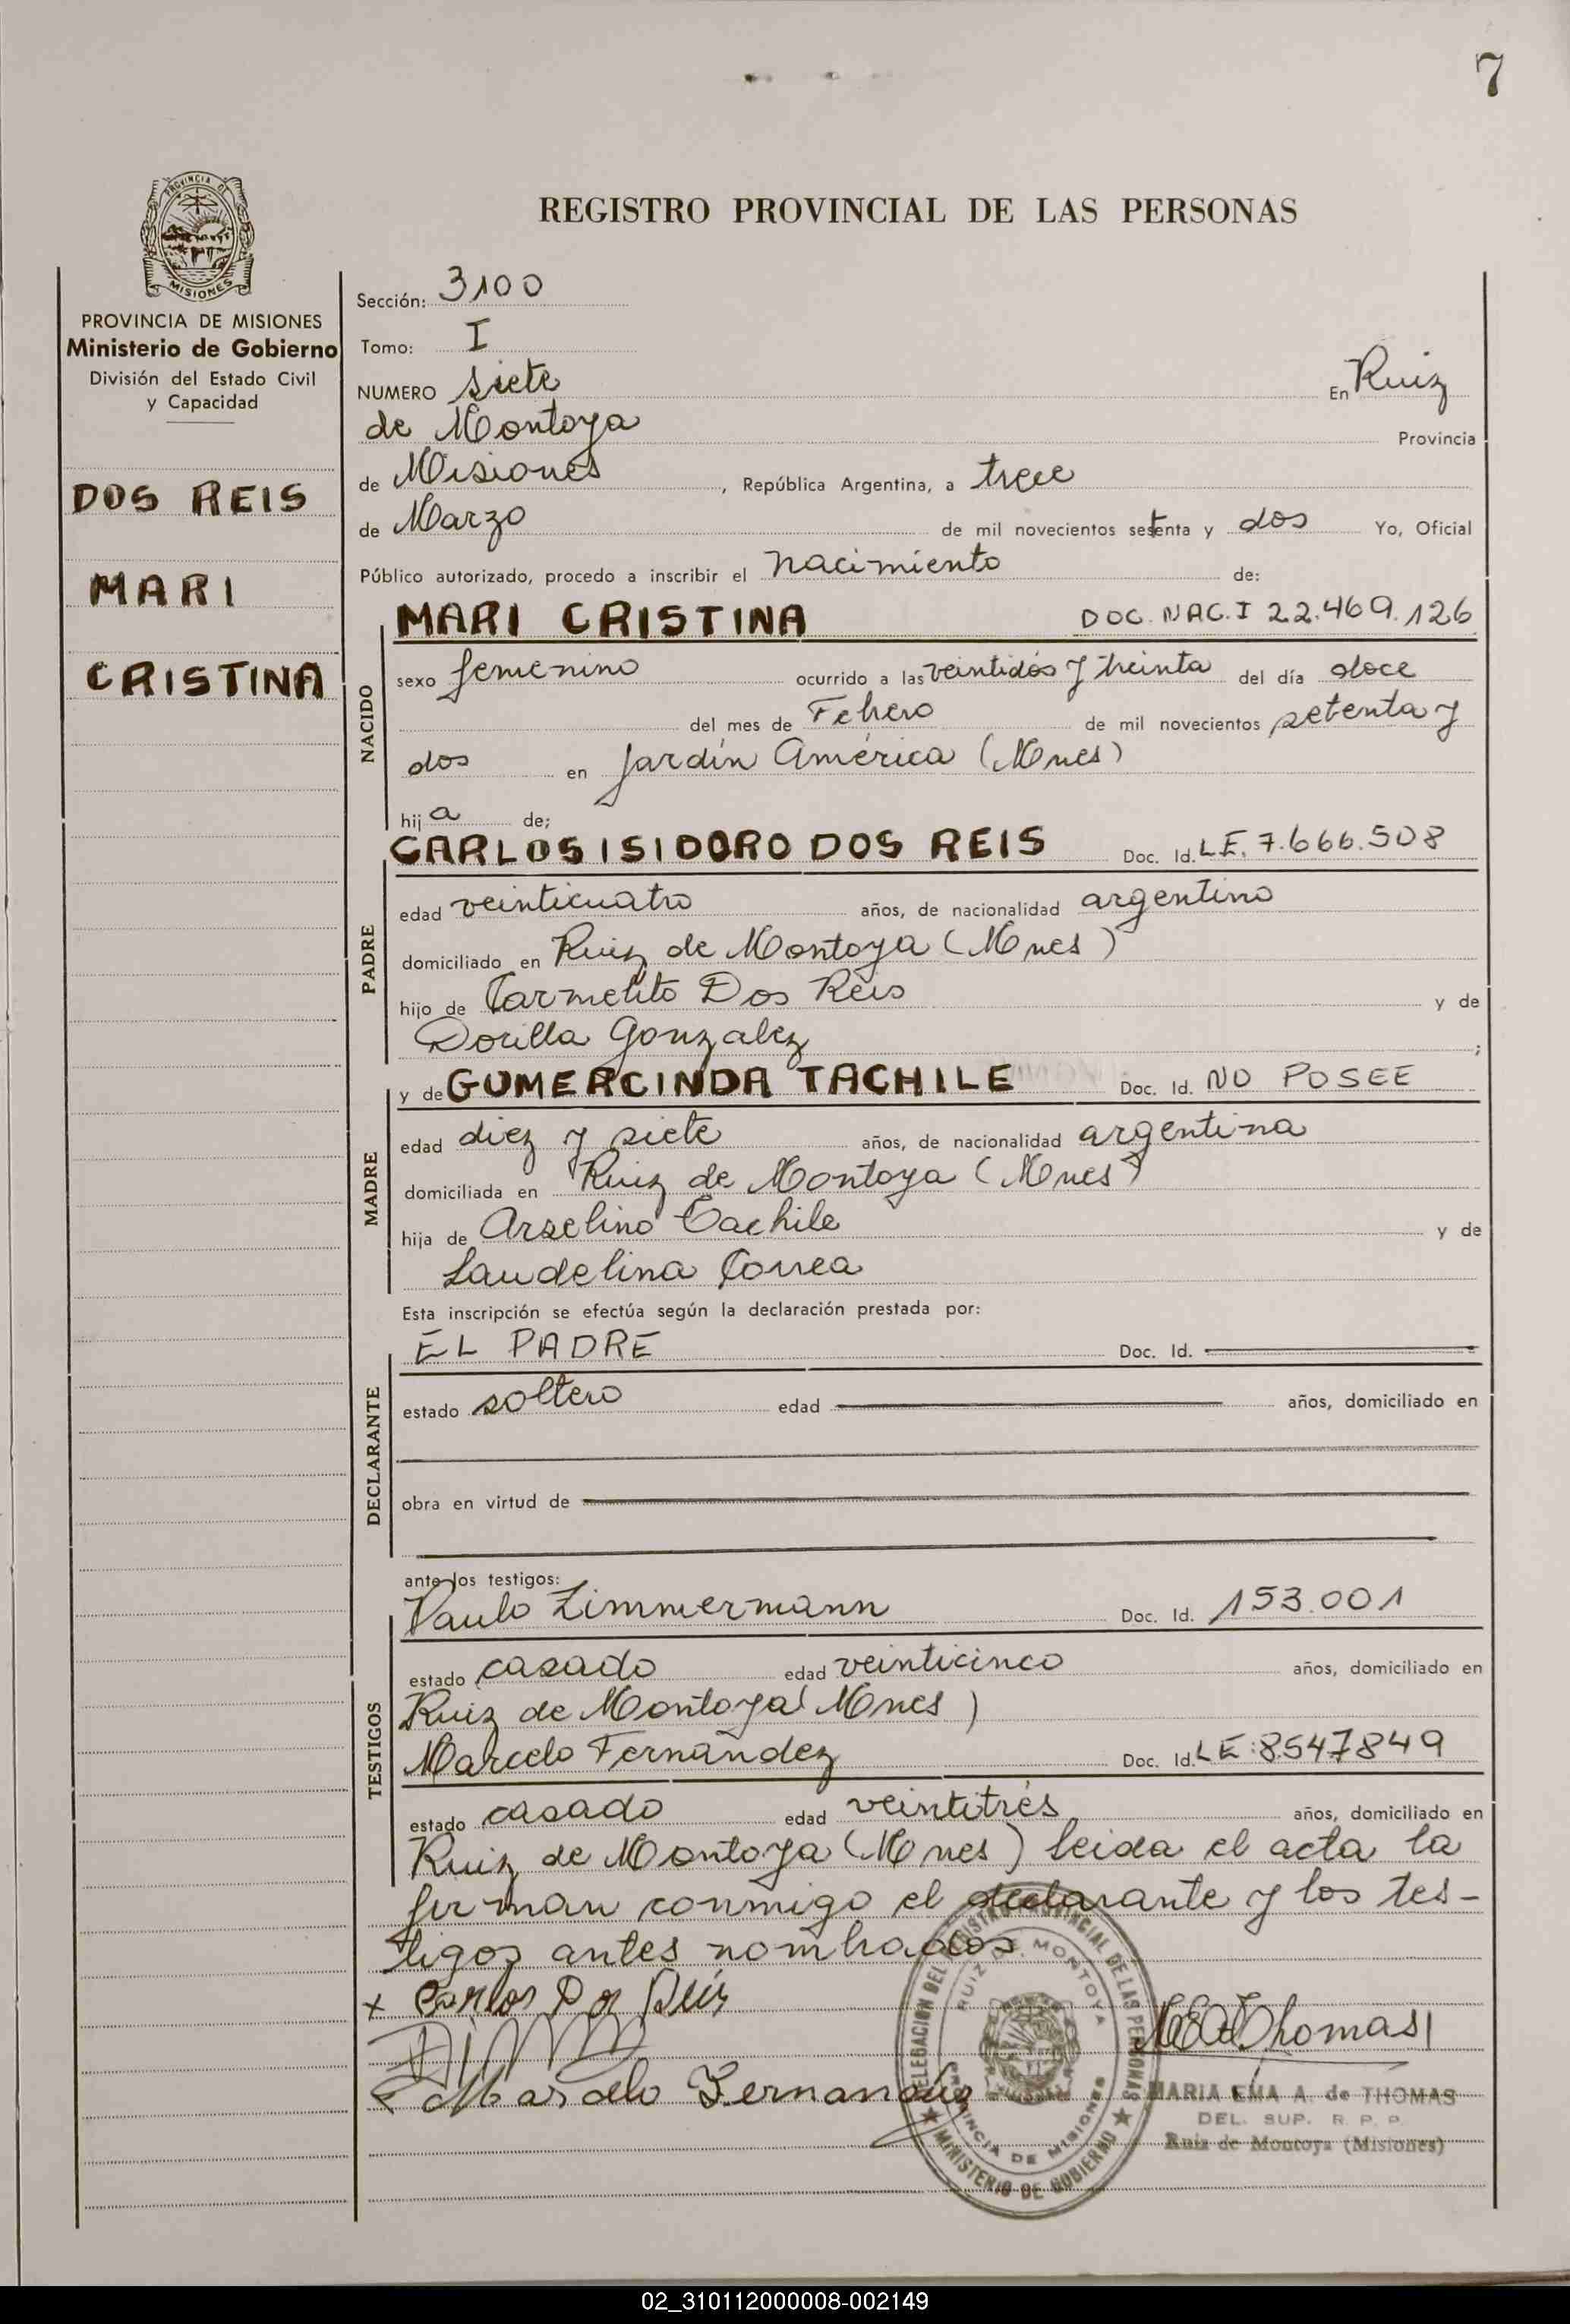 7
PROVINCIA DE MISIONES
REGISTRO PROVINCIAL DE LAS PERSONAS
PROVINCIA DE MISIONES
Ministerio de Gobierno
División del Estado Civil
y Capacidad
DOS REIS
MARI
CRISTINA
Sección: 3100
Tomo: I
NUMERO siete En Ruiz
de Montoya Provincia
de Misiones, República Argentina, a trece
de Marzo de mil novecientos setenta y dos Yo, Oficial
Público autorizado, procedo a inscribir el nacimiento de:
NACIDO
MARI CRISTINA DOC. NAC. I 22.469.126
sexo femenino ocurrido a las veintidós y treinta del día doce
del mes de Febrero de mil novecientos setenta y
dos en Jardín América (Mnes)
hija de;
PADRE
CARLOS ISIDORO DOS REIS Doc. Id. LE. 7.666.508
edad veinticuatro años, de nacionalidad argentino
domiciliado en Ruiz de Montoya (Mnes)
hijo de Carmelito Dos Reis y de
Dorilla Gonzalez;
MADRE
y de GUMERCINDA TACHILE Doc. Id. NO POSEE
edad diez y siete años, de nacionalidad argentina
domiciliada en Ruiz de Montoya (Mnes)
hija de Arselino Tachile y de
Laudelina Correa
Esta inscripción se efectúa según la declaración prestada por:
DECLARANTE
EL PADRE Doc. Id.
estado soltero edad años, domiciliado en
obra en virtud de
ante los testigos:
TESTIGOS
Paulo Zimmermann Doc. Id. 153.001
estado casado edad veinticinco años, domiciliado en
Ruiz de Montoya (Mnes)
Marcelo Fernández Doc. Id. LE: 8547849
estado casado edad veintitrés años, domiciliado en
Ruiz de Montoya (Mnes) leida el acta la
firman conmigo el declarante y los tes-
tigos antes nombrados
x Carlos Dos Reis
Marcelo Fernandez
DELEGACION DEL REGISTRO PROVINCIAL DE LAS PERSONAS
RUIZ DE MONTOYA
PROVINCIA DE MISIONES
MINISTERIO DE GOBIERNO
Thomas
MARIA EMA A. de THOMAS
DEL. SUP. R. P. P.
Ruiz de Montoya (Misiones)
02_310112000008-002149